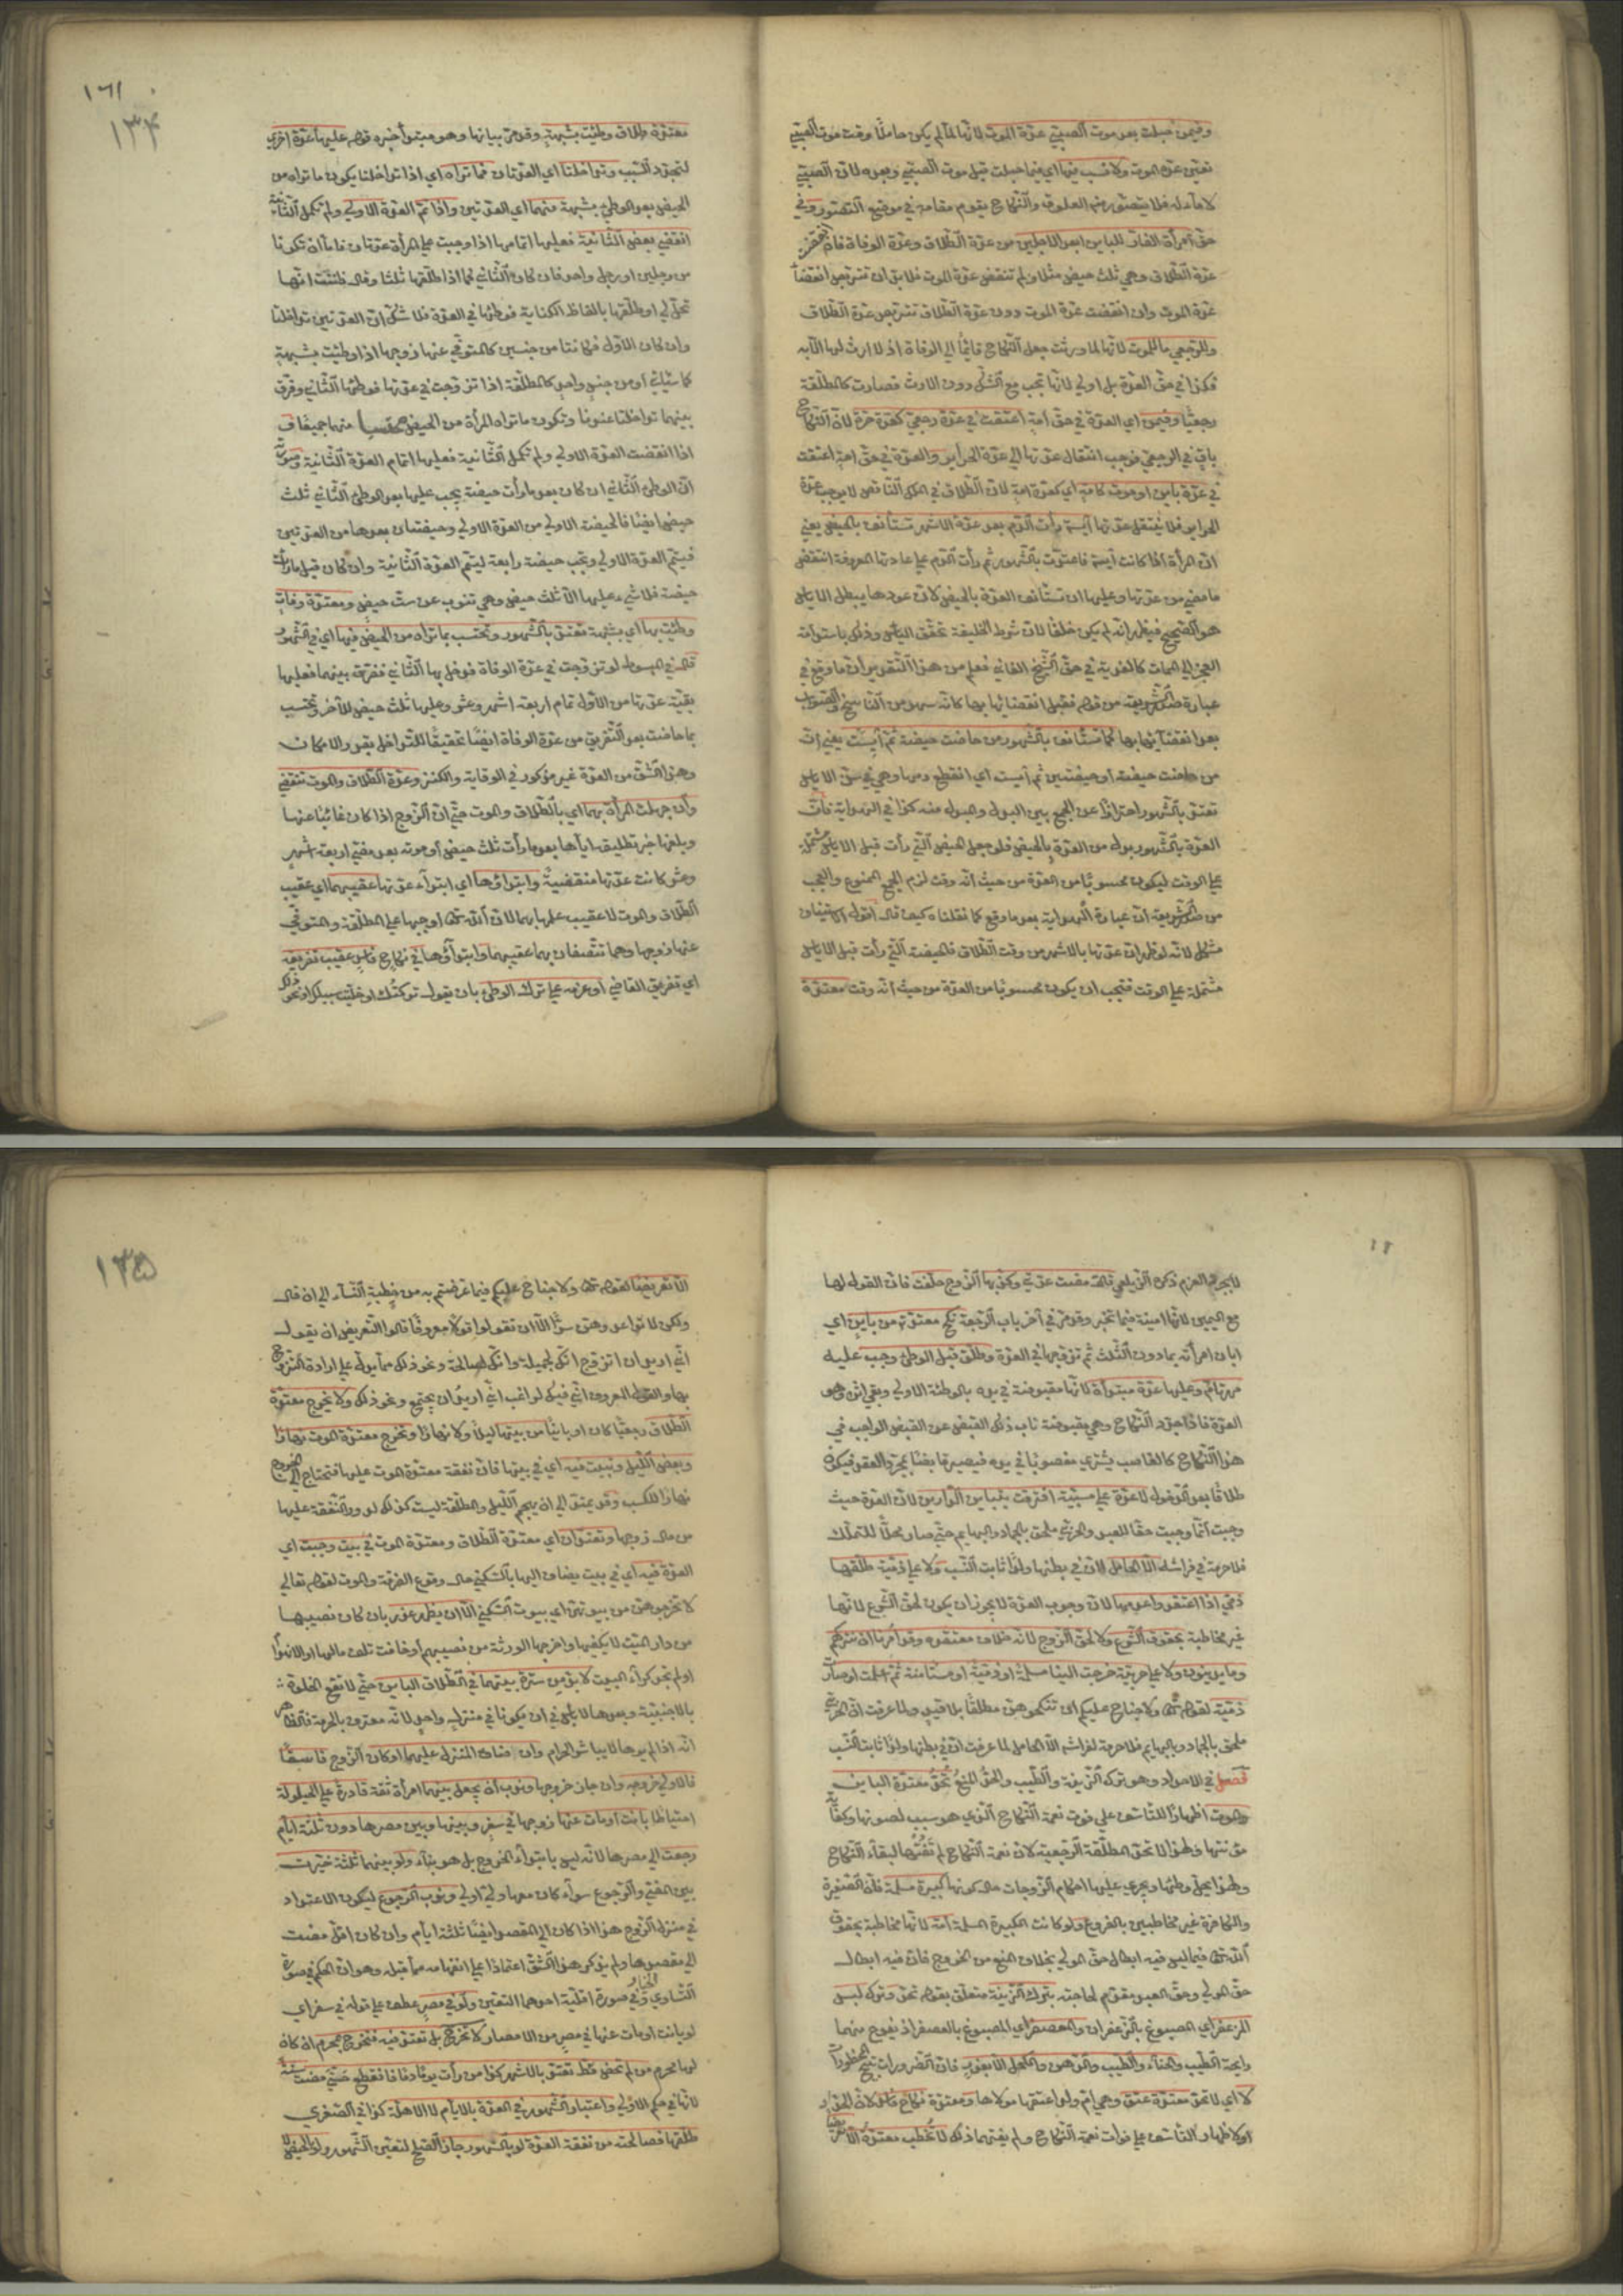 وفيمن حبلت بعد موت الصبي عدة الموت لانها لما لم يكن حاملا وقت موت الصبي
تعين عدة الموت ولا نسب فيهما اي فيما حبلت قبل موت الصبي وبعده لان الصبي
لا ماء له فلا يتصور منه العلوق والنكاح يقوم مقامه في موضع التصور وفي
حق امرأة الفار للباين ابعد الاجلين من عدة الطلاق وعدة الوفاة فان انقضت
عدة الطلاق وهي ثلث حيض مثلا ولم تنقض عدة الموت فلا بد ان تتربص انقضاء
عدة الموت وان انقضت عدة الموت دون عدة الطلاق تتربص عدة الطلاق
وللرجعي ما للموت لانها لما ورثت جعل النكاح قائما الى الوفاة اذ لا ارث لها الا به
فكذا في حق العدة بل اولى لانها تجب مع الشك دون الارث فصارت كالمطلقة
رجعيا وفيمن اي العدة في حق امة اعتقت في عدة رجعي كعدة حرة لان النكاح
باق في الرجعي فوجب انتقال عدتها الى عدة الحرائر والعدة في حق امة اعتقت
في عدة باين او موت كامة اي كعدة امة لان الطلاق في الملك الناقص لا يوجب عدة
الحرائر فلا تنتقل عدتها آيسة رأت الدم بعد عدة الاشهر تستأنف بالحيض يعني
ان المرأة اذا كانت آيسة فاعتدت بالشهور ثم رأت الدم على عادتها المعروفة انتقض
ما مضى من عدتها وعليها ان تستأنف العدة بالحيض لان عودها يبطل الاياس
هو الصحيح فيظهر انه لم يكن خلفا لان شرط الخليفة تحقق اليأس وذلك باستدامة
العجز الى الممات كالفدية في حق الشيخ الفاني فعلم من هذا التقرير ان ما وقع في
عبارة صدر الشريعة من قوله فقبل انقضائها بها كانه سهو من الناسخ والصواب
بعد انقضائها بها كما تستأنف بالشهور من حاضت حيضة ثم أيست يعني ان
من حاضت حيضة او حيضتين ثم أيست اي انقطع دمها وهي في سن الاياس
تعتد بالشهور احترازا عن الجمع بين البدل والمبدل منه كذا في الهداية فان
العدة بالشهور بدل من العدة بالحيض فلو جعل الحيض التي رأت قبل الاياس مشتملة
على الوقت ليكون محسوبا من العدة من حيث انه وقت لزم الجمع الممنوع والعجب
من صدر الشريعة ان عبارة الهداية بعد ما وقع كما نقلناه كيف قال اقول الاستيناف
مشكل لانه لو ظهر ان عدتها بالاشهر من وقت الطلاق فالحيضة التي رأت قبل الاياس
مشتملة على الوقت فتجب ان يكون محسوبا من العدة من حيث انه وقت معتدة
١٦١
١٣٤
معتدة طلاق وطئت بشبهة وقد مر بيانها وهو مبتدأ خبره قوله عليها عدة اخرى
لتجدد السبب وتداخلتا اي العدتان فما تراه اي اذا تداخلتا يكون ما تراه من
الحيض بعد الوطئ بشبهة منهما اي العدتين واذا تم العدة الاولى ولم تكمل الثانية
انقضى بعض الثانية فعليها اتمامها اذا وجبت على المرأة عدتان فاما ان تكونا
من رجلين او رجل واحد فان كان الثاني كما اذا طلقها ثلثا وقال ظننت انها
تحل لي او طلقها بالفاظ الكناية فوطئها في العدة فلا شك ان العدتين تداخلتا
وان كان الاول فكانتا من جنسين كالمتوفى عنها زوجها اذا وطئت بشبهة
كما سيأتي او من جنس واحد كالمطلقة اذا تزوجت في عدتها فوطئها الثاني وفرق
بينهما تداخلتا عندنا وتكون ما تراه المرأة من الحيض محتسبا منهما جميعا ف
اذا انقضت العدة الاولى ولم تكمل الثانية فعليها اتمام العدة الثانية وصورته
ان الوطئ الثاني ان كان بعد ما رأت حيضة يجب عليها بعد الوطئ الثاني ثلث
حيض ايضا فالحيضة الاولى من العدة الاولى وحيضتان بعدها من العدتين
فيتم العدة الاولى وتجب حيضة رابعة ليتم العدة الثانية وان كان قبل ما رأت
حيضة فلا شيء عليها الا ثلث حيض وهي تنوب عن ست حيض ومعتدة وفاة
وطئت بها اي بشبهة تعتد بالشهور وتحتسب بما تراه من الحيض فيها اي في الشهور
قال في المبسوط لو تزوجت في عدة الوفاة فدخل بها الثاني ففرق بينهما فعليها
بقية عدتها من الاول تمام اربعة اشهر وعشر وعليها ثلث حيض للآخر وتحتسب
بما حاضت بعد التفريق من عدة الوفاة ايضا تحقيقا للتداخل بقدر الامكان
وهذا الشق من العدة غير مذكور في الوقاية والكنز وعدة الطلاق والموت تنقضي
وان جهلت المرأة بهما اي بالطلاق والموت حتى ان الزوج اذا كان غائبا عنها
وبلغها خبر تطليقه اياها بعد ما رأت ثلث حيض او موته بعد مضي اربعة اشهر
وعشر كانت عدتها منقضية وابتداؤها اي ابتداء عدتها عقيبهما اي عقيب
الطلاق والموت لا عقيب علمها بهما لان الله تعالى اوجبها على المطلقة والمتوفى
عنها زوجها وهما تتصفان بهما عقيبهما وابتداؤها في نكاح فاسد عقيب تفريقه
اي تفريق القاضي او عزمه على ترك الوطئ بان يقول تركتك او خليت سبيلك او نحو ذلك
لا بمجرد العزم ذكره الزيلعي قالت مضت عدتي وكذبها الزوج حلفت فان القول لها
مع اليمين لانها امينة فيما تخبر وقد مر في آخر باب الرجعة نكح معتدته من باين اي
ابان امرأته بما دون الثلث ثم تزوجها في العدة وطلق قبل الوطئ وجب عليه
مهر تام وعليها عدة مبتدأة لانها مقبوضة في يده بالوطئة الاولى وبقي اثره وهو
العدة فاذا جدد النكاح وهي مقبوضة ناب ذلك القبض عن القبض الواجب في
هذا النكاح كالغاصب يشتري مغصوبا في يده فيصير قابضا بمجرد العقد فيكون
طلاقا بعد الدخول لا عدة على مسبية افترقت بتباين الدارين لان العدة حيث
وجبت انما وجبت حقا للعبد والحربي ملحق بالجماد والبهايم حتى صار محلا للتملك
فلا حرمة في فراشه الا الحامل لان في بطنها ولدا ثابت النسب ولا على ذمية طلقها
ذمي اذا اعتقد واعدمها لان وجوب العدة لا يجوز ان يكون لحق الشرع لانها
غير مخاطبة بحقوق الشرع ولا لحق الزوج لانه خلاف معتقده وقد امرنا ان نتركهم
وما يدينون ولا على حربية خرجت الينا مسلمة او ذمية او مستأمنة ثم اسلمت او صارت
ذمية لقوله تعالى ولا جناح عليكم ان تنكحوهن مطلقا بلا قيد ولما عرفت ان الحربي
ملحق بالجماد والبهايم فلا حرمة لفراشه الا الحامل لما عرفت ان في بطنها ولدا ثابت النسب
فصل في الاحداد وهو ترك الزينة والطيب والحق المنع تحد معتدة الباين
والموت اظهارا للتأسف على فوت نعمة النكاح الذي هو سبب لصونها وكفاية
مؤنتها ولهذا لا تحد المطلقة الرجعية لان نعمة النكاح لم تفتها لبقاء النكاح
ولهذا يحل وطئها ويجري عليها احكام الزوجات حال كونها كبيرة مسلمة فان الصغيرة
والكافرة غير مخاطبين بالفروع ولو كانت الكبيرة المسلمة امة لانها مخاطبة بحقوق
الله تعالى فيما ليس فيه ابطال حق المولى بخلاف المنع من الخروج فان فيه ابطال
حق المولى وحق العبد مقدم لحاجته بترك الزينة متعلق بقوله تحد وترك لبس
المزعفر اي المصبوغ بالزعفران والمعصفر اي المصبوغ بالعصفر اذ يفوح منهما
رايحة الطيب والحناء والطيب والدهن والكحل الا بعذر فان الضرورات تبيح المحظورات
لا اي لا تحد معتدة عتق وهي ام ولد اعتقها مولاها ومعتدة نكاح فاسد لان الحداد
لاظهار التأسف على فوات نعمة النكاح ولم يفتهما ذلك لا تخطب معتدة الا تعريضا
١٣٥
الا تعريضا لقوله تعالى ولا جناح عليكم فيما عرضتم به من خطبة النساء الى ان قال
ولكن لا تواعدوهن سرا الا ان تقولوا قولا معروفا قالوا التعريض ان يقول
اني اريد ان اتزوج انك لجميلة وانك لصالحة ونحو ذلك مما يدل على ارادة التزوج
بها والقول المعروف اني فيك لراغب اني اريد ان نجتمع ونحو ذلك ولا تخرج معتدة
الطلاق رجعيا كان او باينا من بيتها ليلا ولا نهارا وتخرج معتدة الموت نهارا
وبعض الليل وتبيت فيه اي في بيتها فان نفقة معتدة الموت عليها فتحتاج الى الخروج
نهارا للكسب وقد يمتد الى ان يهجم الليل والمطلقة ليست كذلك لدرور النفقة عليها
من مال زوجها وتعتدان اي معتدة الطلاق ومعتدة الموت في بيت وجبت اي
العدة فيه اي في بيت يضاف اليها بالسكنى حال وقوع الفرقة والموت لقوله تعالى
لا تخرجوهن من بيوتهن اي بيوت السكنى الا ان يظهر عذر بان كان نصيبها
من دار الميت لا يكفيها واخرجها الورثة من نصيبهم او خافت تلف مالها او الانهدام
او لم تجد كراء البيت لا بد من سترة بينهما في الطلاق الباين حتى لا تقع الخلوة
بالاجنبية وبعدها لا بأس في ان يكونا في منزل واحد لانه معترف بالحرمة فالظاهر
انه اذا لم يرها لا يباشر الحرام وان ضاق المنزل عليهما او كان الزوج فاسقا
فالاولى خروجه وان جاز خروجها وندب ان يجعل بينهما امرأة ثقة قادرة على الحيلولة
احتياطا بانت او مات عنها زوجها في سفر وبينها وبين مصرها دون ثلثة ايام
رجعت الى مصرها لانه ليس بابتداء الخروج بل هو بناء ولو بينهما ثلثة خيرت
بين المضي والرجوع سواء كان معها ولي او لا وندب الرجوع ليكون الاعتداد
في منزل الزوج هذا اذا كان الى المقصد ايضا ثلثة ايام وان كان اقل مضت
الى مقصدها ولم يذكر هذا الشق اعتمادا على انفهامه مما قبله وهو ان الحكم في صورة
التساوي الخيار وفي صورة اقلية احدهما التعين ولو في مصر عطف على قوله في سفر اي
لو بانت او مات عنها في مصر من الامصار لا تخرج بل تعتد فيه فتخرج بمحرم ان كان
لها محرم من لم تحض قط تعتد بالاشهر كذا من رأت يوما دما فانقطع حتى مضت سنة
لانها في حكم الاولى واعتبار الشهور في العدة بالايام لا الاهلة كذا في الصغرى
طلقها فصالحته من نفقة العدة لو بالشهور جاز الصلح لتعين الشهور ولو بالحيض لا